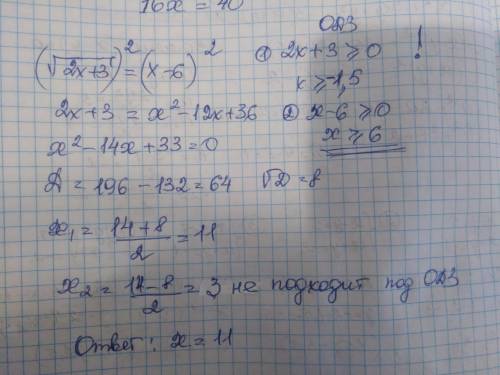 16x = 40
ОДЗ
(√2x+3)² = (x-6)² ① 2x+3 ≥ 0 !
x ≥ -1,5
2x+3 = x²-12x+36 ② x-6 ≥ 0
x ≥ 6
x²-14x+33=0
D = 196 - 132 = 64 √D = 8
x₁ = 14+8/2 = 11
x₂ = 14-8/2 = 3, не подходит под ОДЗ
Ответ: x = 11